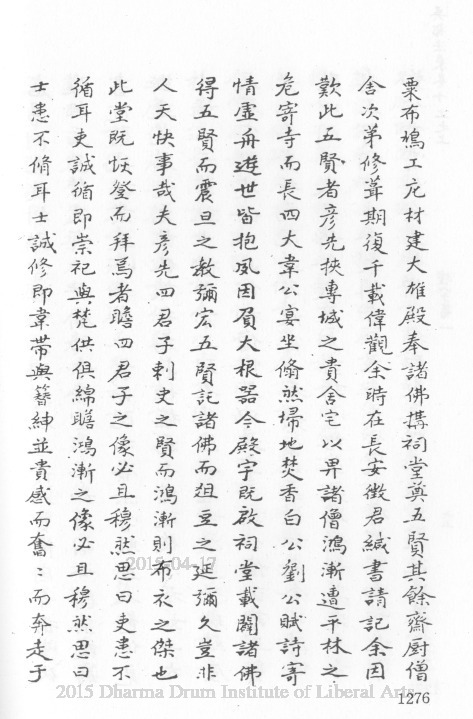 粟布鳩工庀材建大雄殿奉諸佛搆祠堂奠五賢其餘齋廚僧
舍次第修葺期復千載偉觀余時在長安徵君緘書請記余因
歎此五賢者彥先挾專城之貴舍宅以畀諸僧鴻漸遭平林之
危寄寺而長四大韋公宴坐翛然掃地焚香白公劉公賦詩寄
情虛舟遊世皆抱夙因負大根器今殿宇既啟祠堂載闢諸佛
得五賢而震旦之教彌宏五賢託諸佛而俎豆之延彌久豈非
人天快事哉夫彥先四君子刺史之賢而鴻漸則布衣之傑也
此堂既恢登而拜焉者瞻四君子之像必且穆然思曰吏患不
循耳吏誠循即崇祀與梵供俱綿瞻鴻漸之像必且穆然思曰
士患不脩耳士誠修即韋帶與簪紳並貴感而奮〻而奔走于
2015-04-17
2015 Dharma Drum Institute of Liberal Arts
1276